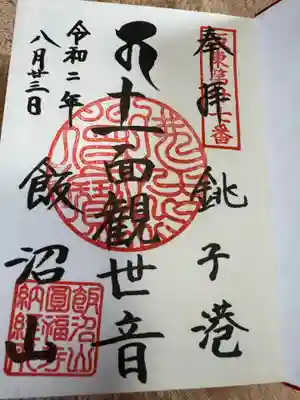 坂東第廿七番
奉拝 銚子港
十一面觀世音
飯沼山
令和二年
八月廿三日
飯沼山
圓福寺